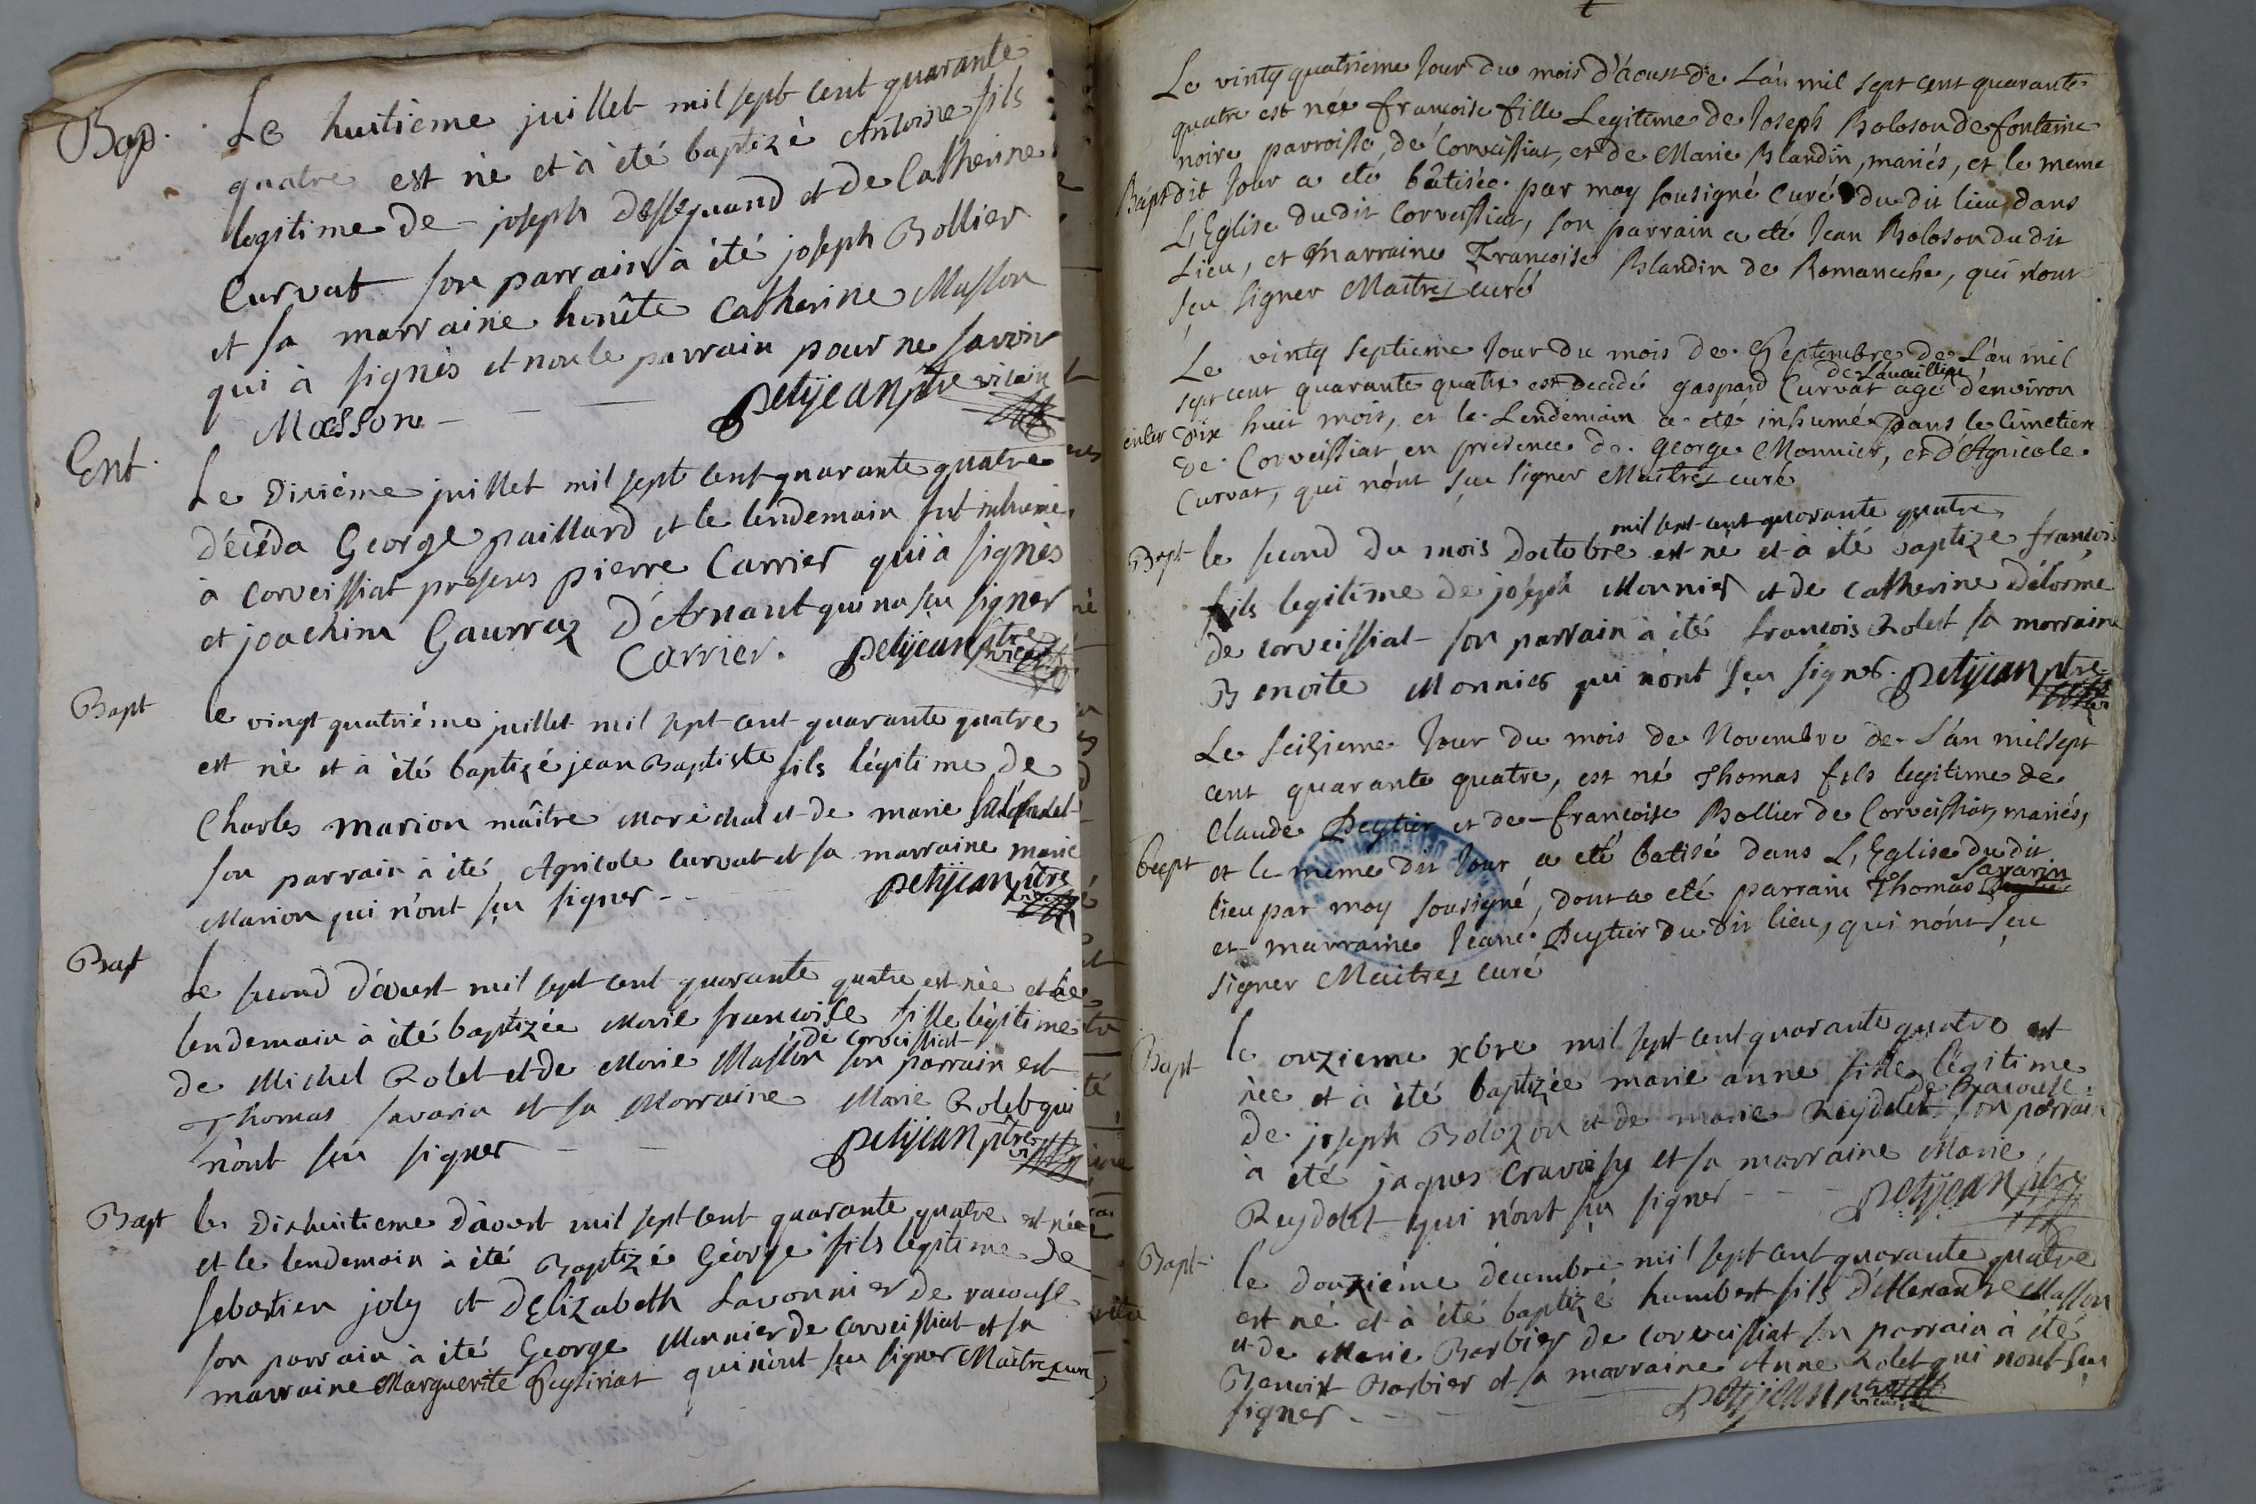 Bap. Le huitieme juillet mil sept cent quarante
quatre est né et à été baptizé Antoine fils
legitime de joseph dessegnand et de Catherine
Curvat son parrain à été joseph Bollier
et sa marraine honête Catherine Masson
qui à signés et non le parrain pour ne savoir
Masson petijean ptre vicaire
Ent. Le Dixiéme juillet mil sept cent quarante quatre
décéda George paillard et le lendemain fut inhumé
à Corveissiat presens pierre Carrier qui à signés
et joachim Gaurraz D'Arnant qui na sçu signer
Carrier. petijean ptre vicaire
Bapt le vingt quatriéme juillet mil sept cent quarante quatre
est né et à été baptizé jean Baptiste fils légitime de
Charles Marion mâitre Maréchal et de marie
son parrain à été Agricole Curvat et sa marraine marie
Marion qui n'ont sçu signer petijean ptre
Bapt le second d'aoust mil sept cent quarante quatre est née et le
lendemain à été baptizée Marie francoise fille légitime
de corveissiat
de Michel Rolet et de Marie Masson son parrain est
Thomas savarin et sa Marraine Marie Rolet qui
n'ont sçu signer petijean ptre
Bapt le Dixhuitieme d'aoust mil sept cent quarante quatre est née
et le lendemain à été Baptizé George fils légitime de
sebastien joly et D'Elizabeth Lavonnier de racouse
son parrain à été George Monnier de corveissiat et sa
marraine Marguerite Peytiriat qui n'ont sçu signer Maitre curé
Le vintq quatrieme Jour du mois d'aoust de L'an mil sept cent quarante
quatre est née francoise fille Legitime de Joseph Boloson de fontaine
noire parroisse de Corveissiat, et de Marie Blandin, mariés, et le meme
Bapt dit Jour a eté bâtisée par moy sousigné Curé du dit lieu dans
L'Eglise du dit Corveissiat, son parrain a eté Jean Boloson du dit
Lieu, et Marraine Francoise Blandin de Romaneche, qui n'ont
sçu signer Maitre curé
Le vintq septieme Jour du mois de Septembre de L'an mil
de Lavaillieu
sept cent quarante quatre est decedé gaspard Curvat agé d'environ
enter dix huit mois, et le Lendemain a eté inhumé Dans le Cimetiere
de Corveissiat en presence de George Monnier, et d'Agricole
Curvat, qui n'ont sçu signer Maitre curé
mil sept cent quarante quatre
Bapt le second du mois Doctobre est né et à été baptize francois
fils legitime de joseph Monnier et de Catherine délorme
de corveissiat son parrain à été francois Rolet sa marraine
Benoite Monnier qui n'ont sçu signer. petijean ptre
Le seizieme Jour du mois de Novembre de L'an mil sept
cent quarante quatre, est né Thomas fils legitime de
Claude Peytier et de francoise Bollier de Corveissiat, mariés,
bapt et le meme dit Jour a eté batisé dans L'Eglise du dit
savarin
lieu par moy sousigné, dont a eté parrain Thomas
et marraine Jeane Peytier du dit lieu, qui n'ont sçu
signer Maitre curé
Bapt le onzieme xbre mil sept cent quarante quatre est
née et à été baptizée marie anne fille légitime
de Racouse
de joseph Bolozon et de marie Reydelet son parrain
à été jaques Cravoisy et sa marraine Marie
Reydelet qui n'ont sçu signer petijean ptre
Bapt le douziéme décembre mil sept cent quarante quatre
est né et à été baptizé humbert fils D'Alexandre Masson
et de Marie Barbier de corveissiat son parrain à été
Benoit Barbier et sa marraine Anne Rolet qui n'ont sçu
signer. petijean ptre vicaire